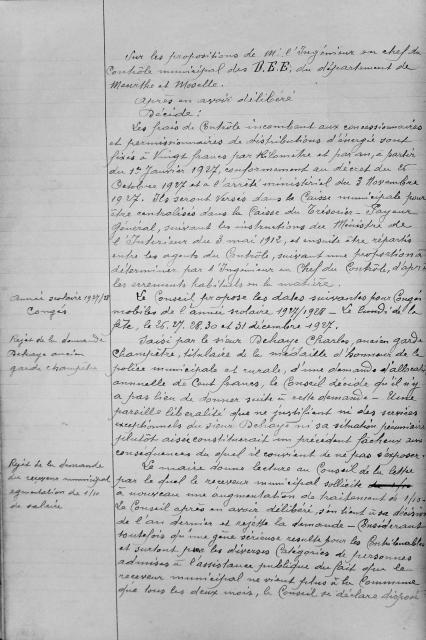 Sur les propositions de M. l'Ingénieur en chef du
Contrôle municipal des D.E.E. du département de
Meurthe et Moselle.
Après en avoir délibéré
Décide :
Les frais de Contrôle incombant aux concessionnaires
et permissionnaires de distributions d'énergie sont
fixés à Vingt francs par Kilomètre et par an, à partir
du 1er Janvier 1927, conformément au décret du
Octobre 1927 et à l'arrêté ministériel du 3 Novembre
1927. Ils seront versés dans la Caisse municipale pour
être centralisés dans la Caisse du Trésorier-Payeur
Général, suivant les instructions du Ministre de
l'Intérieur du 3 mai 1912, et ensuite être répartis
entre les agents du Contrôle, suivant une proportion à
déterminer par l'Ingénieur en Chef du Contrôle, d'après
les errements habituels en la matière.
Année scolaire 1927/28
Congés
Le Conseil propose les dates suivantes pour Congés
mobiles de l'année scolaire 1927/1928 - Le lundi de la
fête, le 26. 27. 28. 30 et 31 décembre 1927.
Rejet de la demande
Dehaye ancien
garde champêtre
Saisi par le sieur Dehaye Charles, ancien garde
Champêtre, titulaire de la médaille d'honneur de la
police municipale et rurale, d'une demande d'allocation
annuelle de Cent francs, le Conseil décide qu'il n'y
a pas lieu de donner suite à cette demande - Une
pareille libéralité que ne justifient ni des services
exceptionnels du sieur Dehaye ni sa situation pécuniaire
plutôt aisée constituerait un précédent fâcheux aux
conséquences duquel il convient de ne pas s'exposer.
Rejet de la demande
du receveur municipal
augmentation de 1/10
de salaire
Le maire donne lecture au Conseil de la lettre
par laquelle le receveur municipal sollicite
à nouveau une augmentation de traitement de 1/10 -
Le Conseil après en avoir délibéré, s'en tient à sa décision
de l'an dernier et rejette la demande - Considérant
toutefois qu'une gêne sérieuse résulte pour les Contribuables
et surtout par les diverses Catégories de personnes
admises à l'assistance publique du fait que le
receveur municipal ne vient plus à la Commune
que tous les deux mois, le Conseil se déclare disposé